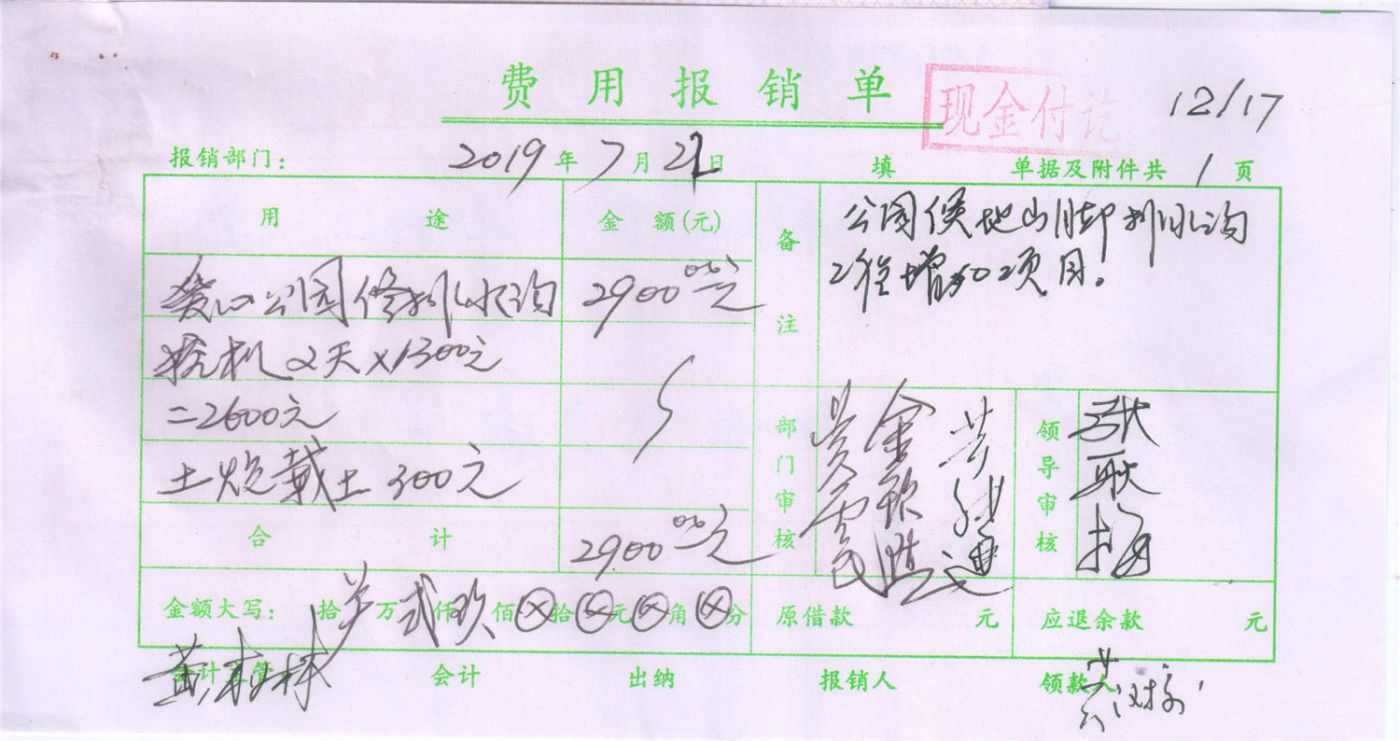 费用报销单
现金付讫
12/17
报销部门: 2019年7月21日 填 单据及附件共1页
用途 金额(元) 备注
公园侯地山脚排水沟
工程增加项目。
公园修排水沟 2900.00元
挖机2天×1300元
=2600元
土炮载土300元
合计 2900.00元
部门审核
领导审核 张耿梅
金额大写: 拾万贰仟玖佰⊗拾⊗元⊗角⊗分 原借款 元 应退余款 元
会计主管 会计 出纳 报销人 领款人